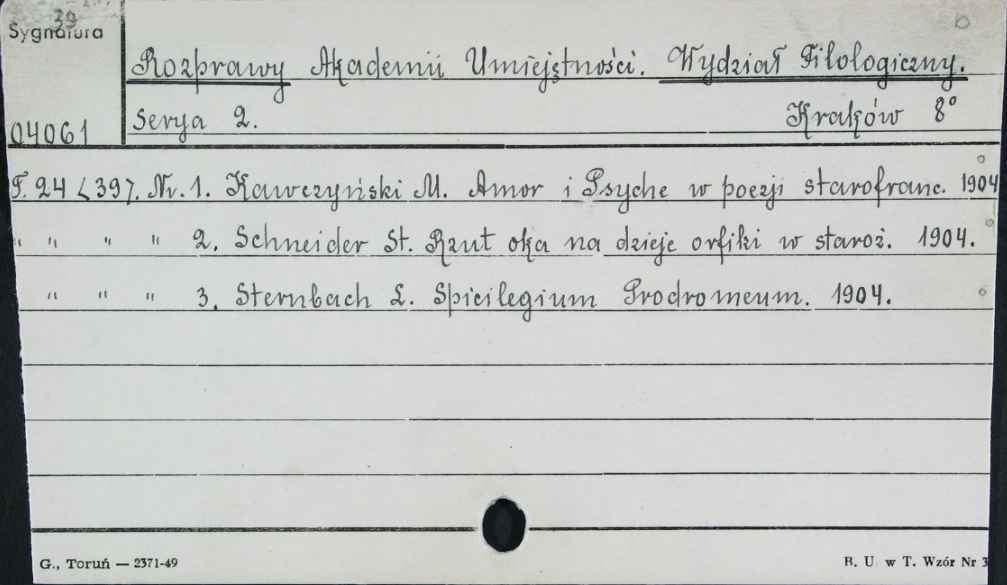 39
Sygnatura
Rozprawy Akademii Umiejętności. Wydział Filologiczny.
Serya 2. Kraków 8°
04061
T. 24 <39>. Nr. 1. Kawczyński M. Amor i Psyche w poezji starofranc. 1904
" " " " 2. Schneider St. Rzut oka na dzieje orfiki w staroż. 1904.
" " " 3. Sternbach L. Spicilegium Prodromeum. 1904.
G., Toruń — 2371-49
B. U. w T. Wzór Nr 3